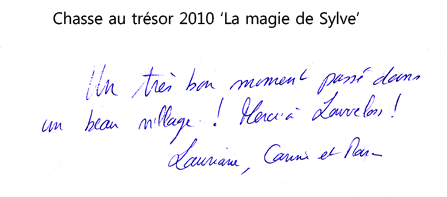 Chasse au trésor 2010 ‘La magie de Sylve’
Un très bon moment passé dans
un beau village ! Merci à
Lauriane, Carine et